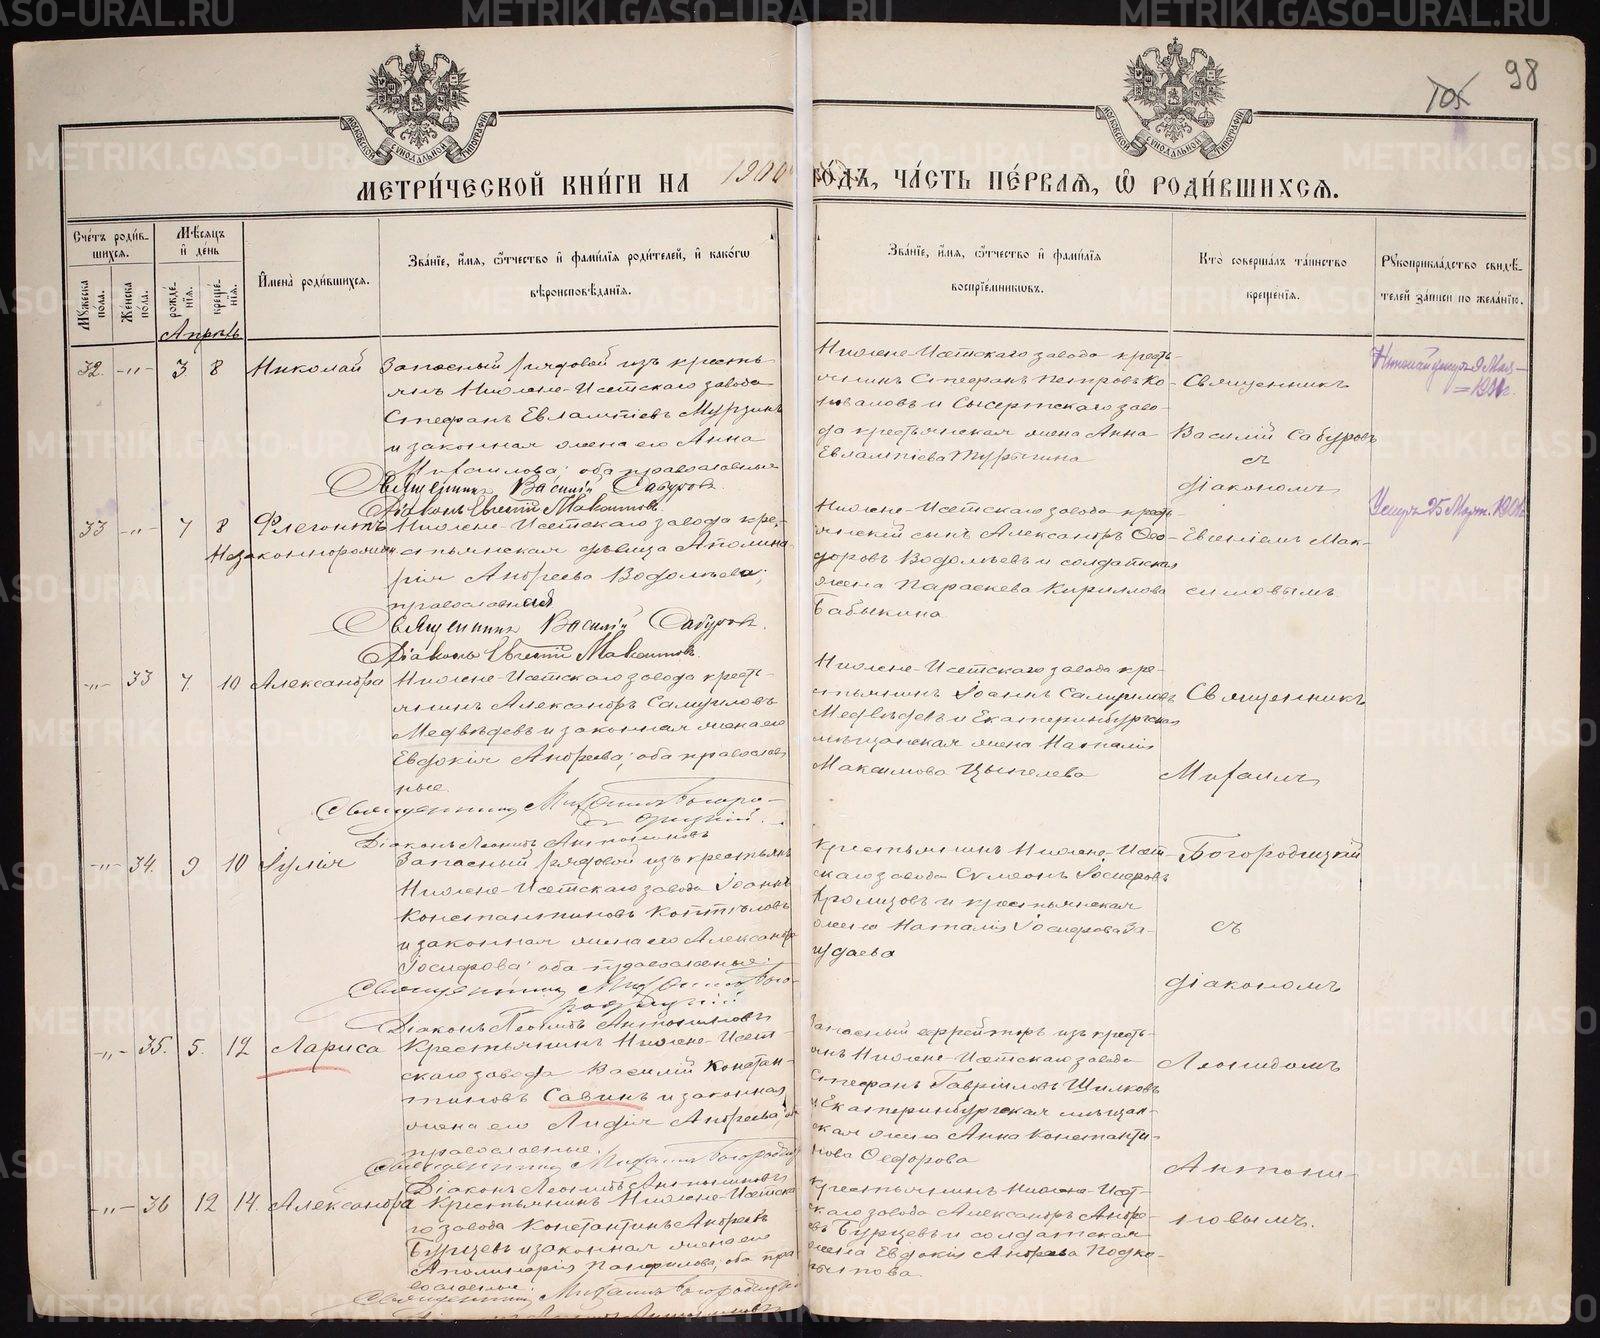 98
МОСКОВСКОЙ СѴНОДАЛЬНОЙ ТИПОГРАФІИ
МОСКОВСКОЙ СѴНОДАЛЬНОЙ ТИПОГРАФІИ
МЕТРИ́ЧЕСКОЙ КНИ́ГИ НА 1900 ГО́ДЪ, ЧА́СТЬ ПЕ́РВАЯ, Ѡ҆ РОДИ́ВШИХСЯ.
Сче́тъ роди́в-
шихся.
Му́жеска по́ла.
Же́нска по́ла.
Мѣ́сяцъ
и҆ де́нь
рожде́-нїя.
креще́-нїя.
И҆мена̀ роди́вшихся.
Зва́нїе, и҆́мя, ѻ҆́тчество и҆ фами́лїя роди́телей, и҆ како́гѡ
вѣроисповѣ́данїя.
Зва́нїе, и҆́мя, ѻ҆́тчество и҆ фами́лїя
воспрїе́мникѡвъ.
Кто̀ соверша́лъ та́инство
креще́нїя.
Рꙋкоприкла́дство свидѣ́-
телей за́писи по жела́нїю.
Апрѣль
32. -"- 3 8 Николай
Запасный рядовой изъ кресть-
янъ Нижне-Исетскаго завода
Стефанъ Евлампіевъ Мурзинъ
и законная жена его Анна
Михаилова; оба православные
Священникъ Василій Сабуровъ
Діаконъ Евгеній Максимовъ.
Нижне-Исетскаго завода кресть-
янинъ Стефанъ Петровъ Ко-
новаловъ и Сысертскаго заво-
да крестьянская жена Анна
Евлампіева Турыгина
Священникъ
Василій Сабуровъ
съ
діакономъ
33 -"- 7 8 Флегонтъ
Незаконнорожден
Нижне-Исетскаго завода кре-
стьянская дѣвица Аполина-
рія Андреева Водолѣева;
православная
Священникъ Василій Сабуровъ.
Діаконъ Евгеній Максимовъ.
Нижне-Исетскаго завода кресть-
янскій сынъ Александръ Ѳео-
доровъ Водолѣевъ и солдатская
жена Параскева Кириллова
Бабыкина
Евгеніемъ Мак-
симовымъ
Умеръ 25 Март. 1901г.
-"- 33 7. 10 Александра
Нижне-Исетскаго завода кресть-
янинъ Александръ Самуиловъ
Медвѣдевъ и законная жена его
Евдокія Андреева; оба православ-
ные.
Священникъ Михаилъ Богоро-
дицкій.
Діаконъ Леонидъ Антониновъ
Нижне-Исетскаго завода кре-
стьянинъ Іоаннъ Самуиловъ
Медвѣдевъ и Екатеринбургская
мѣщанская жена Наталія
Максимова Цыпелева
Священникъ
Михаилъ
-"- 34. 9 10 Іулія
Запасный рядовой изъ крестьянъ
Нижне-Исетскаго завода Іоаннъ
Константиновъ Коптѣловъ
и законная жена его Александра
Іосифова; оба православные.
Священникъ Михаилъ Бого-
родицкій
Діаконъ Леонидъ Антониновъ
Крестьянинъ Нижне-Исет-
скаго завода Симеонъ Іосифовъ
и крестьянская
жена Наталія Іосифова
Богородицкій
съ
діакономъ
-"- 35. 5. 12 Лариса
Крестьянинъ Нижне-Исет-
скаго завода Василій Констан-
тиновъ Савинъ и законная
жена его Лидія Андреева; оба
православные.
Священникъ Михаилъ Богородиц
Діаконъ Леонидъ Антониновъ
Запасный ефрейторъ изъ кресть-
янъ Нижне-Исетскаго завода
Стефанъ Гавріиловъ Шилковъ
и Екатеринбургская мѣщан-
ская жена Анна Константи-
нова Ѳеодорова
Леонидомъ
Антони-
-"- 36 12 14. Александра
Крестьянинъ Нижне-Исетска-
го завода Константинъ Андреевъ
Бурцевъ и законная жена его
Аполинарія Панфилова; оба пра-
вославные.
Священникъ Михаилъ Богородицк
Діаконъ Леонидъ Антониновъ
Крестьянинъ Нижне-Исет-
скаго завода Александръ Андре-
евъ Бурцевъ и солдатская
жена Евдокія Андреева Подко-
рытова.
новымъ.
METRIKI.GASO-URAL.RU